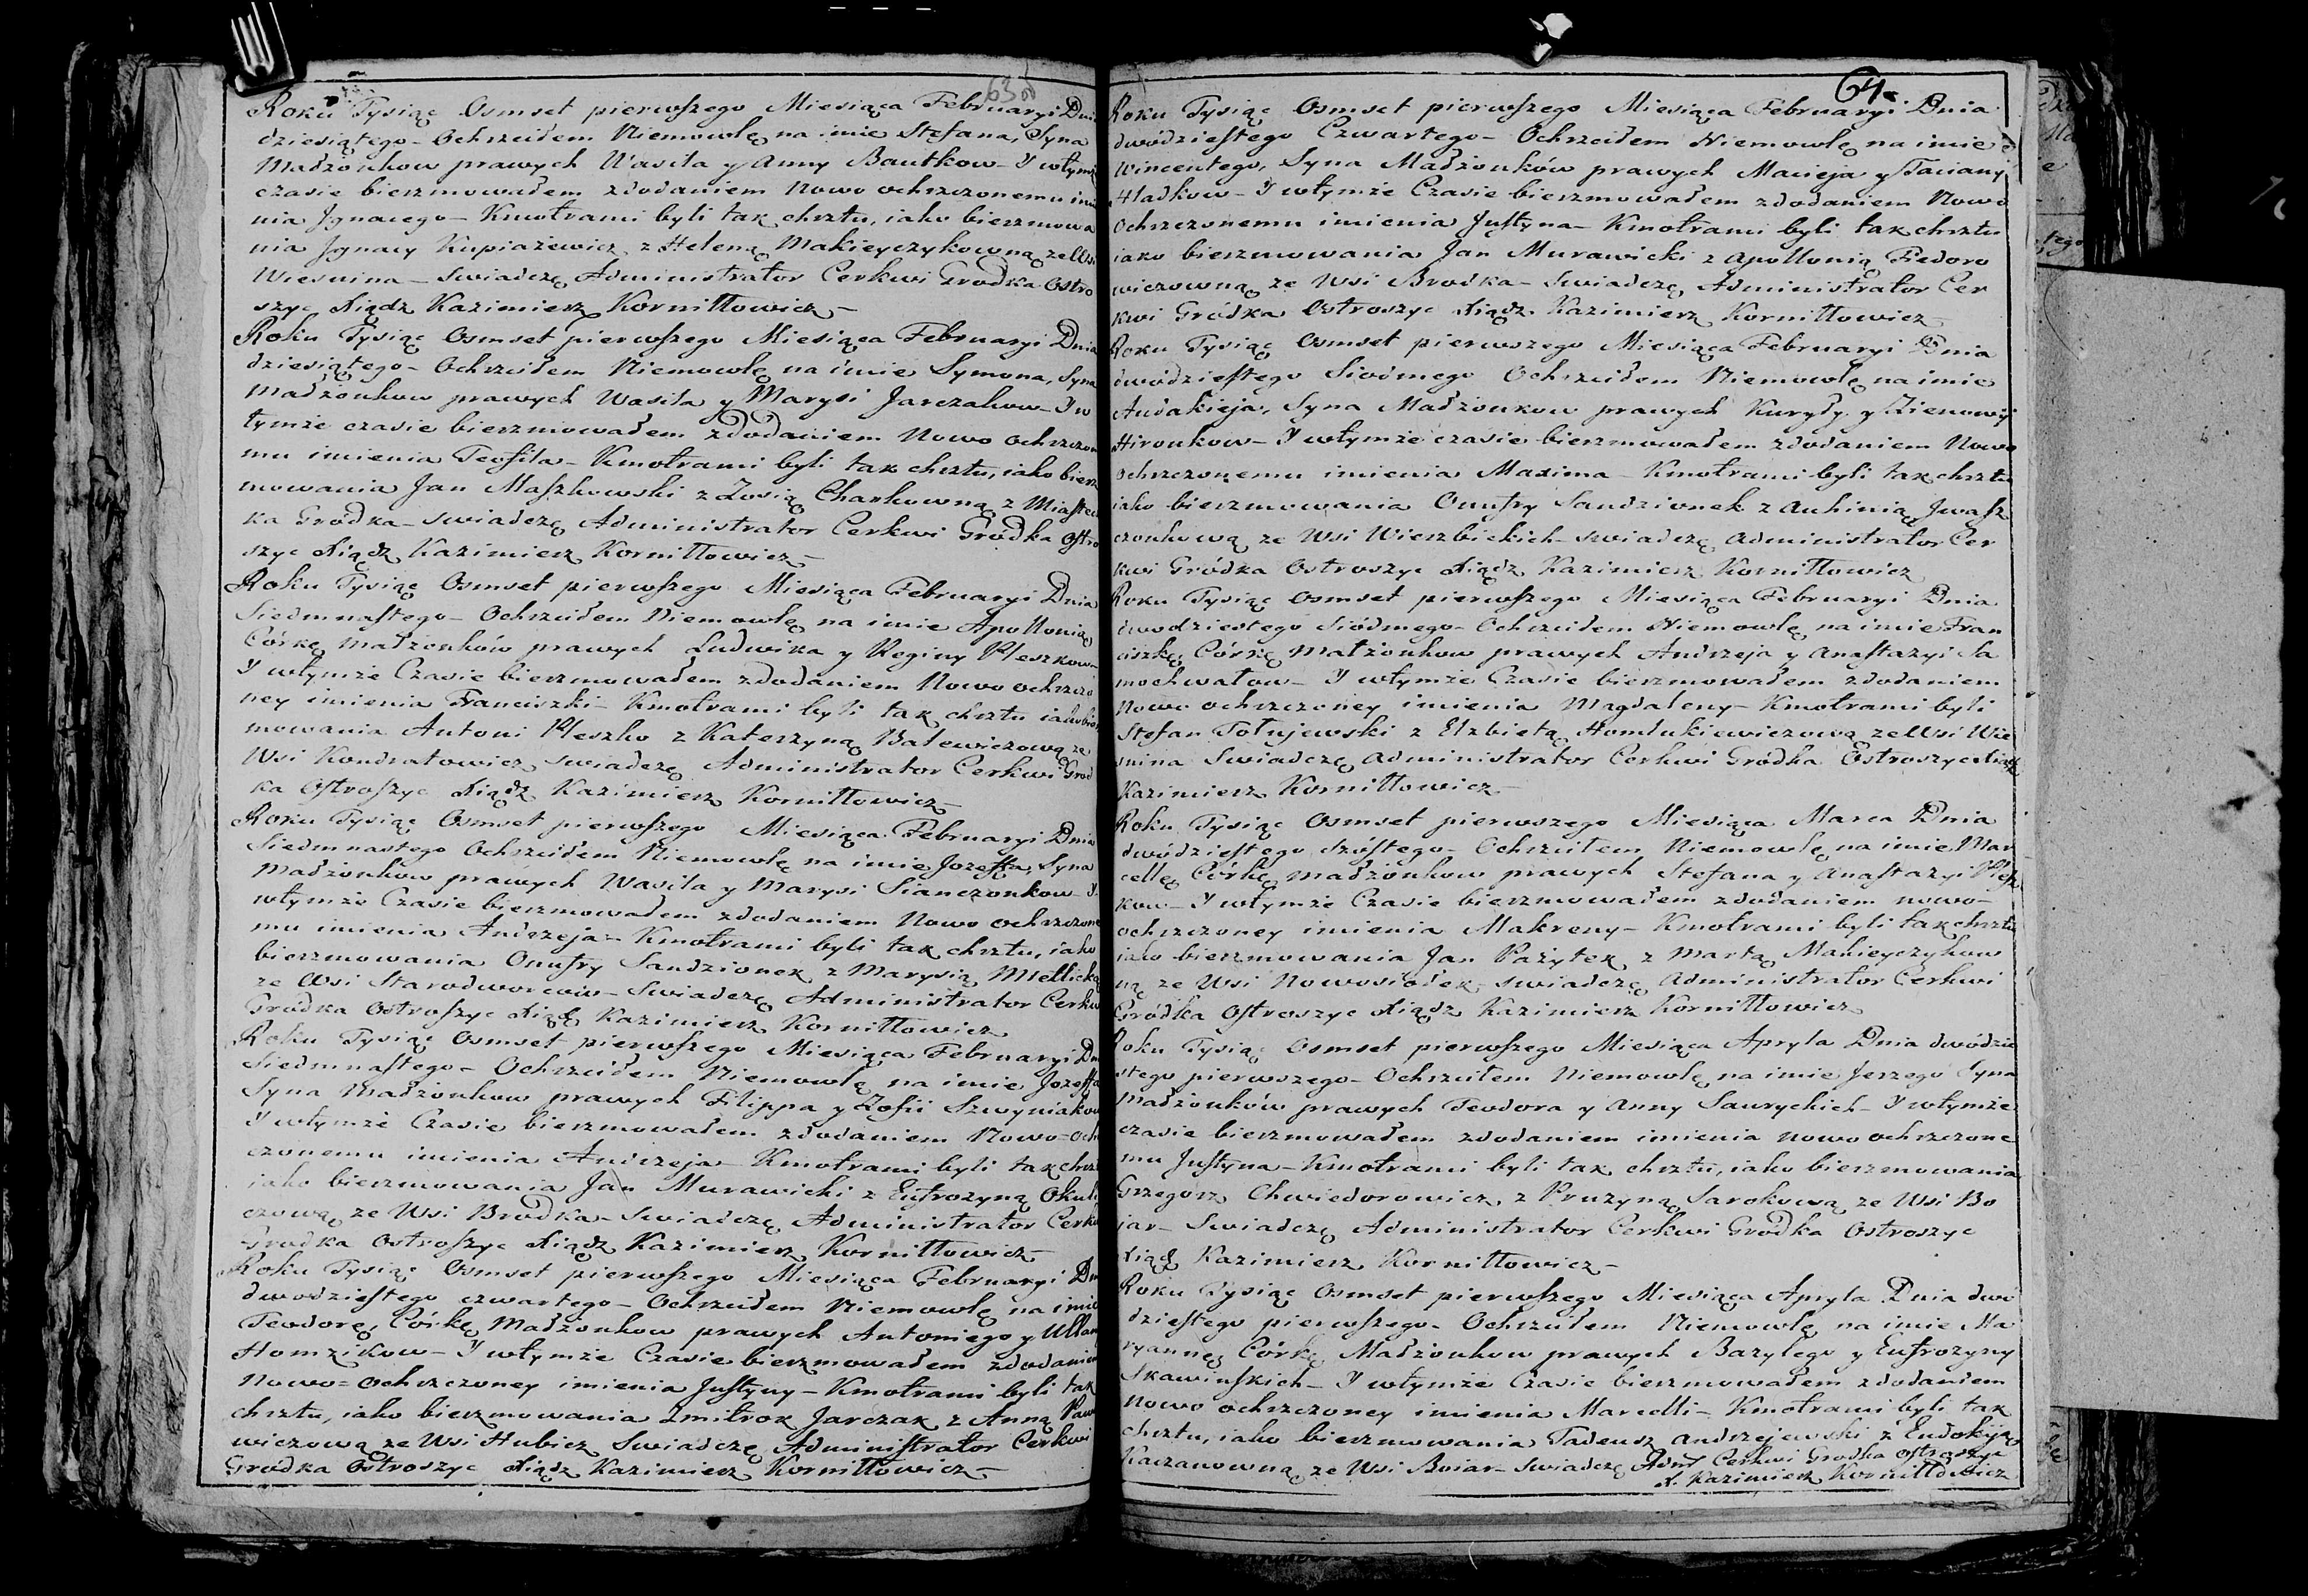 63 od
Roku Tysiąc Osmset pierwszego Miesiąca Februaryi Dnia
dziesiątego - Ochrzciłem Niemowlę na imie Stefana, Syna
Małżonkow prawych Wasila y Anny Bautkow - I wtymże
czasie bierzmowałem zdodaniem Nowo ochrzczonemu imie
nia Jgnacego - Kmotrami byli tak chrztu, iako bierzmowa
nia Jgnacy Kupiażewicz z Heleną Makieyczykowną ze Wsi
Wiesnina - Swiadczę Administrator Cerkwi Grodka Ostro
szyc Xiądz Kazimierz Korniłłowicz -
Roku Tysiąc Osmset pierwszego Miesiąca Februaryi Dnia
dziesiątego - Ochrzciłem Niemowlę na imie Symona, Syna
Małżonkow prawych Wasila y Marysi Jarczakow - I w
tymże czasie bierzmowałem zdodaniem Nowo ochrzczone
mu imienia Teofila - Kmotrami byli tak chrztu, iako bierz
mowania Jan Maszkowski z Zosią Charkowną z Miastecz
ka Gródka - swiadczę Administrator Cerkwi Gródka Ostro
szyc Xiądz Kazimierz Korniłłowicz -
Roku Tysiąc Osmset pierwszego Miesiąca Februaryi Dnia
Siedmnastego - Ochrzciłem Niemowlę na imie Apollonią
Córkę małżonków prawych Ludwika y Reginy Pleszkow -
I wtymże Czasie bierzmowałem zdodaniem Nowo ochrzczo
ney imienia Franciszki - Kmotrami byli tak chrztu iako bierz
mowania Antoni Pleszko z Katerzyną Balewiczową ze
Wsi Kondratowicz swiadczę Administrator Cerkwi Grod
ka Ostroszyc Xiądz Kazimierz Korniłłowicz -
Roku Tysiąc Osmset pierwszego Miesiąca Februaryi Dnia
Siedmnastego Ochrzciłem Niemowlę na imie Jozeffa, Syna
Małżonkow prawych Wasila y Marysi Sianczonkow - I
wtymże Czasie bierzmowałem zdodaniem Nowo ochrzczone
mu imienia Andrzeja - Kmotrami byli tak chrztu, iako
bierzmowania Onufry Sandzionek z Marysią Mietlicką
ze Wsi Starodworcow - Swiadczę Administrator Cerkwi
Gródka Ostroszyc Xiądz Kazimierz Korniłłowicz
Roku Tysiąc Osmset pierwszego Miesiąca Februaryi Dn
Siedmnastego - Ochrzciłem Niemowlę na imie Jozeffa
Syna Małżonkow prawych Filippa y Zofii Szwyniakow
I wtymże Czasie bierzmowałem zdodaniem Nowo=och
czonemu imienia Andrzeja - Kmotrami byli tak chrzt
iako bierzmowania Jan Murawicki z Eufrozyną Okuli
czową ze Wsi Brodka - Swiadczę Administrator Cerkw
Grodka Ostroszyc Xiądz Kazimierz Korniłłowicz -
Roku Tysiąc Osmset pierwszego Miesiąca Februaryi Dn
dwodziestego czwartego - Ochrzciłem Niemowlę na imie
Teodorę, Córkę Małżonkow prawych Antoniego y Ullany
Homzikow - I wtymże Czasie bierzmowałem zdodaniem
Nowo=ochrzczoney imienia Justyny - Kmotrami byli tak
chrztu, iako bierzmowania Zmitrok Jarczak z Anną Paw
wiczową ze Wsi Hubicz Swiadczę Administrator Cerkwi
Grodka Ostroszyc Xiądz Kazimierz Korniłłowicz -
64
Roku Tysiąc Osmset pierwszego Miesiąca Februaryi Dnia
dwódziestego Czwartego - Ochrzciłem Niemowlę na imie
Wincentego, Syna Małżonków prawych Macieja y Taciany
Hladkow - I wtymże Czasie bierzmowałem zdodaniem Nowo
Ochrzczonemu imienia Justyna - Kmotrami byli tak chrztu
iako bierzmowania Jan Murawicki z Apollonią Fiedoro
wiczowną ze Wsi Brodka - Swiadczę Administrator Cer
kwi Gródka Ostroszyc Xiądz Kazimierz Korniłłowicz -
Roku Tysiąc Osmset pierwszego Miesiąca Februaryi Dnia
dwódziestego Siodmego Ochrzciłem Niemowlę na imie
Audakieja, Syna Małżonkow prawych Kuryły y Zienowij
Hironkow - I wtymże czasie bierzmowałem zdodaniem Nowo
ochrzczonemu imienia Maxima - Kmotrami byli tak chrztu
iako bierzmowania Onufry Sandzionek z Auhinią Jwasz
czonkową ze Wsi Wierzbickich - swiadczę Administrator Cer
kwi Gródka Ostroszyc Xiądz Kazimierz Korniłłowicz
Roku Tysiąc Osmset pierwszego Miesiąca Februaryi Dnia
dwodziestego Siódmego - Ochrzciłem Niemowlę na imie Fran
ciszkę Córkę Małżonkow prawych Andrzeja y Anastazyi Sa
mochwałow - I wtymże Czasie bierzmowałem zdodaniem
Nowo ochrzczoney imienia Magdaleny - Kmotrami byli
Stefan Tołujewski z Elzbietą Homlukiewiczową ze Wsi Wie
snina Swiadczę Administrator Cerkwi Grodka Ostroszyc Xiądz
Kazimierz Korniłłowicz -
Roku Tysiąc Osmset pierwszego Miesiąca Marca Dnia
dwódziestego szóstego - Ochrzciłem Niemowlę na imie Mar
cellę Córkę Małżonkow prawych Stefana y Anastazyi Plesz
kow - I wtymże Czasie bierzmowałem zdodaniem nowo -
ochrzczoney imienia Makreny - Kmotrami byli tak chrztu
iako bierzmowania Jan Pażytek z Martą Makieyczykow
ną ze Wsi Nowosiołek - swiadczę Administrator Cerkwi
Gródka Ostroszyc Xiądz Kazimierz Korniłłowicz
Roku Tysiąc Osmset pierwszego Miesiąca Apryla Dnia dwódzie
stego pierwszego - Ochrzciłem Niemowlę na imie Jerzego Syna
Małżonków prawych Teodora y Anny Sauryckich - I wtymże
czasie bierzmowałem zdodaniem imienia nowo ochrzczone
mu Justyna - Kmotrami byli tak chrztu, iako bierzmowania
Grzegorz Chwiedorowicz z Pruzyną Sarokową ze Wsi Bo
jar - Swiadczę Administrator Cerkwi Grodka Ostroszyc
Xiądz Kazimierz Korniłłowicz -
Roku Tysiąc Osmset pierwszego Miesiąca Apryla Dnia dwó
dziestego pierwszego - Ochrzciłem Niemowlę na imie Ma
ryannę Córkę Małżonkow prawych Bazylego y Eufrozyny
Skawinskich - I wtymże Czasie bierzmowałem zdodaniem
Nowo ochrzczoney imienia Marcelli - Kmotrami byli tak
chrztu, iako bierzmowania Tadeusz Andrzejewski z Eudokyją
Kaczanowną ze Wsi Boiar - swiadczę Admr Cerkwi Grodka Ostroszyc
X. Kazimierz Korniłłowicz